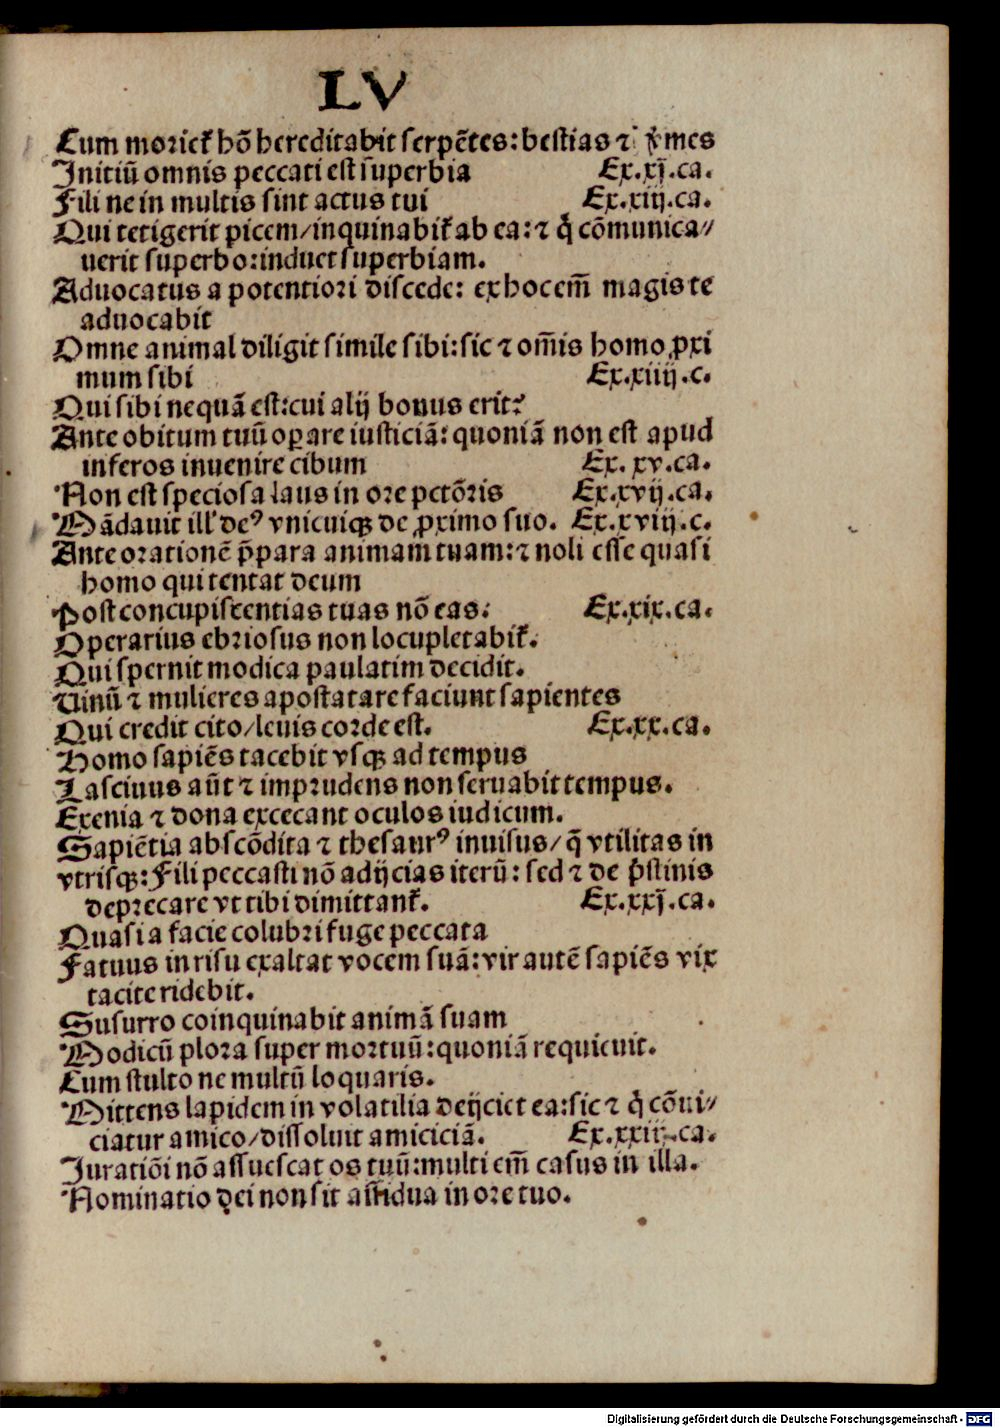 LV
Cum morietꝛ hō hereditabit serpētes: bestias ⁊ v̄mes
Initiū omnis peccati est suꝑbia Ex.xj.ca.
Fili ne in multis sint actus tui Ex.xiij.ca.
Qui tetigerit picem/inquinabitꝛ ab ea: ⁊ q̇ cōmunica⸗
uerit superbo: induet superbiam.
Aduocatus a potentiori discede: ex hoc em̄ magis te
aduocabit
Omne animal diligit simile sibi: sic ⁊ om̄is homo ꝓxi
mum sibi Ex.xiiij.c.
Qui sibi nequā est: cui alij bonus erit?
Ante obitum tuū oꝑare iusticiā: quoniā non est apud
inferos inuenire cibum Ex.xv.ca.
Non est speciosa laus in ore petōris Ex.xvij.ca.
Mādauit ill' deꝰ vnicuiqꝫ de ꝓximo suo. Ex.xviij.c.
Ante orationē p̄para animam tuam: ⁊ noli esse quasi
homo qui tentat deum
Post concupiscentias tuas nō eas. Ex.xix.ca.
Operarius ebriosus non locupletabitꝛ.
Qui spernit modica paulatim decidit.
Uinū ⁊ mulieres apostatare faciunt sapientes
Qui credit cito/leuis corde est. Ex.xx.ca.
Homo sapiēs tacebit vsqꝫ ad tempus
Lasciuus aūt ⁊ imprudens non seruabit tempus.
Exenia ⁊ dona excecant oculos iudicum.
Sapiētia abscōdita ⁊ thesaurꝰ inuisus/q̄ vtilitas in
vtrisqꝫ: Fili peccasti nō adijcias iterū: sed ⁊ de p̄stinis
deprecare vt tibi dimittantꝛ. Ex.xxj.ca.
Quasi a facie colubri fuge peccata
Fatuus in risu exaltat vocem suā: vir autē sapiēs vix
tacite ridebit.
Susurro coinquinabit animā suam
Modicū plora super mortuū: quoniā requieuit.
Cum stulto ne multū loquaris.
Mittens lapidem in volatilia deijciet ea: sic ⁊ q̇ cōui⸗
ciatur amico/dissoluit amiciciā. Ex.xxiij.ca.
Iuratiōi nō assuescat os tuū: multi em̄ casus in illa.
Nominatio dei non sit assidua in ore tuo.
Digitalisierung gefördert durch die Deutsche Forschungsgemeinschaft - DFG